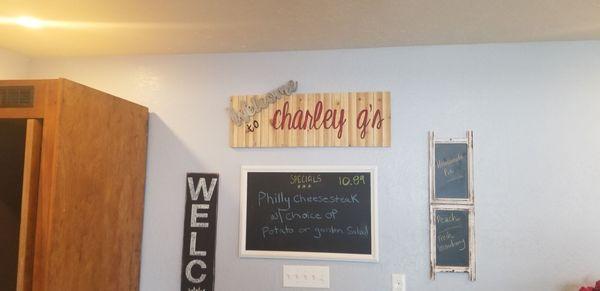 Welcome
to charley g's
SPECIALS 10.99
Philly Cheesesteak
w/ choice of
Potato or garden Salad
WELC
Homemade
Pie
Peach
Fresh
Strawberry